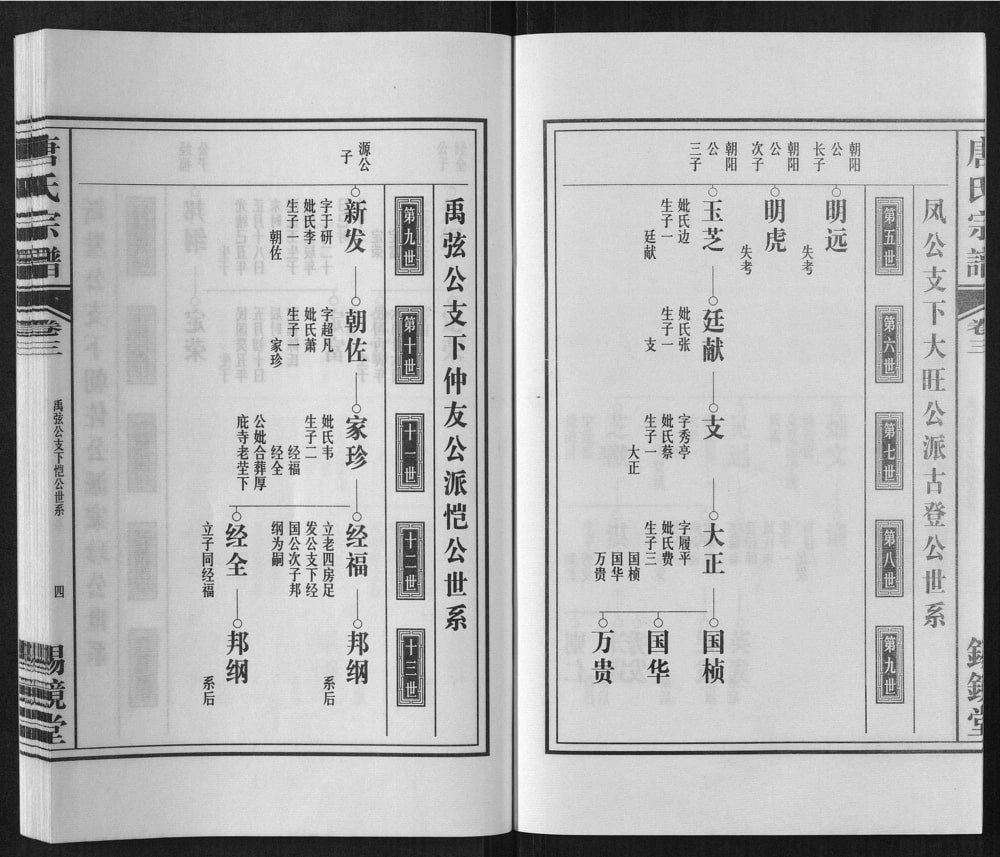 唐氏宗谱
卷三
锡镜堂
凤公支下大旺公派古登公世系
第五世
第六世
第七世
第八世
第九世
朝阳
公
长子
明远
失考
朝阳
公
次子
明虎
失考
朝阳
公
三子
玉芝
妣氏边
生子一
廷献
廷献
妣氏张
生子一
支
支
字秀亭
妣氏蔡
生子一
大正
大正
字履平
妣氏费
生子三
国桢
国华
万贵
国桢
国华
万贵
禹弦公支下仲友公派恺公世系
第九世
第十世
十一世
十二世
十三世
源公
子
新发
字于研
妣氏李
生子一
朝佐
朝佐
字超凡
妣氏萧
生子一
家珍
家珍
妣氏韦
生子二
经福
经全
公妣合葬厚
庇寺老茔下
经福
立老四房足
发公支下经
国公次子邦
纲为嗣
邦纲
系后
经全
立子同经福
邦纲
系后
唐氏宗谱
卷三
禹弦公支下恺公世系
四
锡镜堂